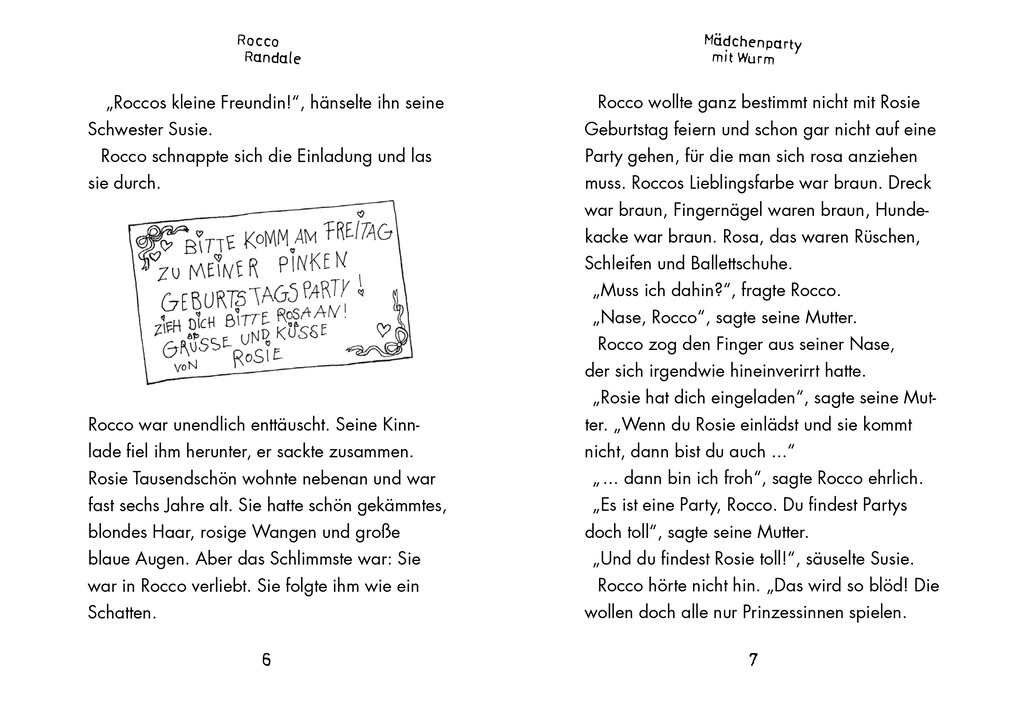 Rocco
Randale
„Roccos kleine Freundin!“, hänselte ihn seine
Schwester Susie.
Rocco schnappte sich die Einladung und las
sie durch.
BITTE KOMM AM FREITAG
ZU MEINER PINKEN
GEBURTSTAGSPARTY!
ZIEH DICH BITTE ROSA AN!
GRÜSSE UND KÜSSE
VON ROSIE
Rocco war unendlich enttäuscht. Seine Kinn-
lade fiel ihm herunter, er sackte zusammen.
Rosie Tausendschön wohnte nebenan und war
fast sechs Jahre alt. Sie hatte schön gekämmtes,
blondes Haar, rosige Wangen und große
blaue Augen. Aber das Schlimmste war: Sie
war in Rocco verliebt. Sie folgte ihm wie ein
Schatten.
6
Mädchenparty
mit Wurm
Rocco wollte ganz bestimmt nicht mit Rosie
Geburtstag feiern und schon gar nicht auf eine
Party gehen, für die man sich rosa anziehen
muss. Roccos Lieblingsfarbe war braun. Dreck
war braun, Fingernägel waren braun, Hunde-
kacke war braun. Rosa, das waren Rüschen,
Schleifen und Ballettschuhe.
„Muss ich dahin?“, fragte Rocco.
„Nase, Rocco“, sagte seine Mutter.
Rocco zog den Finger aus seiner Nase,
der sich irgendwie hineinverirrt hatte.
„Rosie hat dich eingeladen“, sagte seine Mut-
ter. „Wenn du Rosie einlädst und sie kommt
nicht, dann bist du auch ...“
„... dann bin ich froh“, sagte Rocco ehrlich.
„Es ist eine Party, Rocco. Du findest Partys
doch toll“, sagte seine Mutter.
„Und du findest Rosie toll!“, säuselte Susie.
Rocco hörte nicht hin. „Das wird so blöd! Die
wollen doch alle nur Prinzessinnen spielen.
7